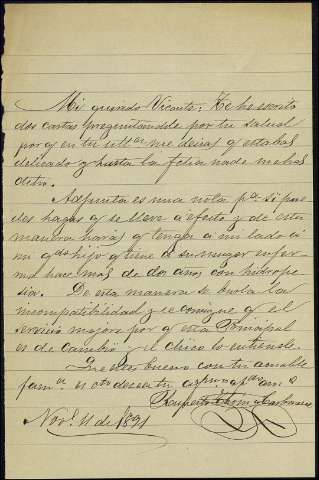 Mi querido Vicente: Te he escrito
dos cartas preguntandote por tu salud
por q en tu ult.ª me decias q estabas
delicado y hasta la fecha nada me has
dicho.
Adjunta es una nota p.ª si pue-
des hagas q se lleve a efecto y de esta
manera harás q tenga á mi lado á
mi q.do hijo q tiene á su muger enfer-
ma hace mas de dos años con hidrope-
sia. De esta manera se burla la
incompatibilidad y se consigue q el
servicio mejore por q esta Principal
es de cambio y el chico lo entiende.
Que estes bueno con tu amable
fam.ª es c.to desea tu
Ruperto
Nov.e 11 de 1891